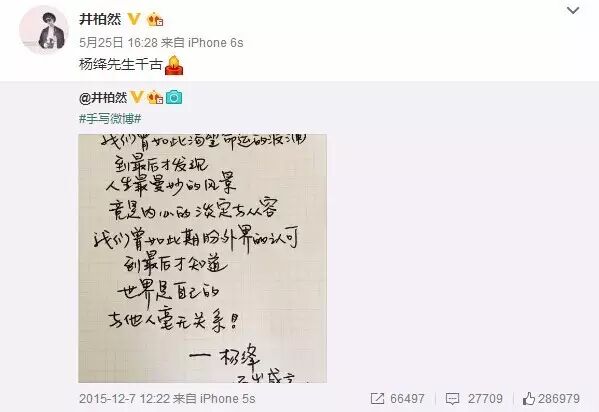 井柏然
5月25日 16:28 来自 iPhone 6s
杨绛先生千古
@井柏然
#手写微博#
我们曾如此渴望命运的波澜
到最后才发现
人生最曼妙的风景
竟是内心的淡定与从容
我们曾如此期盼外界的认可
到最后才知道
世界是自己的
与他人毫无关系!
— 杨绛
2015-12-7 12:22 来自 iPhone 5s
66497
27709
286979